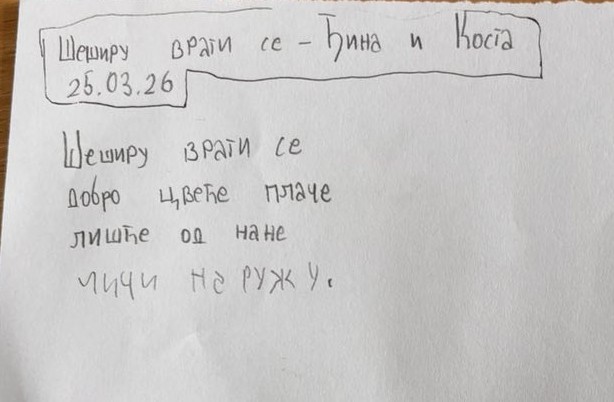 Шеширу врати се - Ђина и Коста
25.03.26
Шеширу врати се
добро цвеће плаче
лишће од нане
личи на ружу.